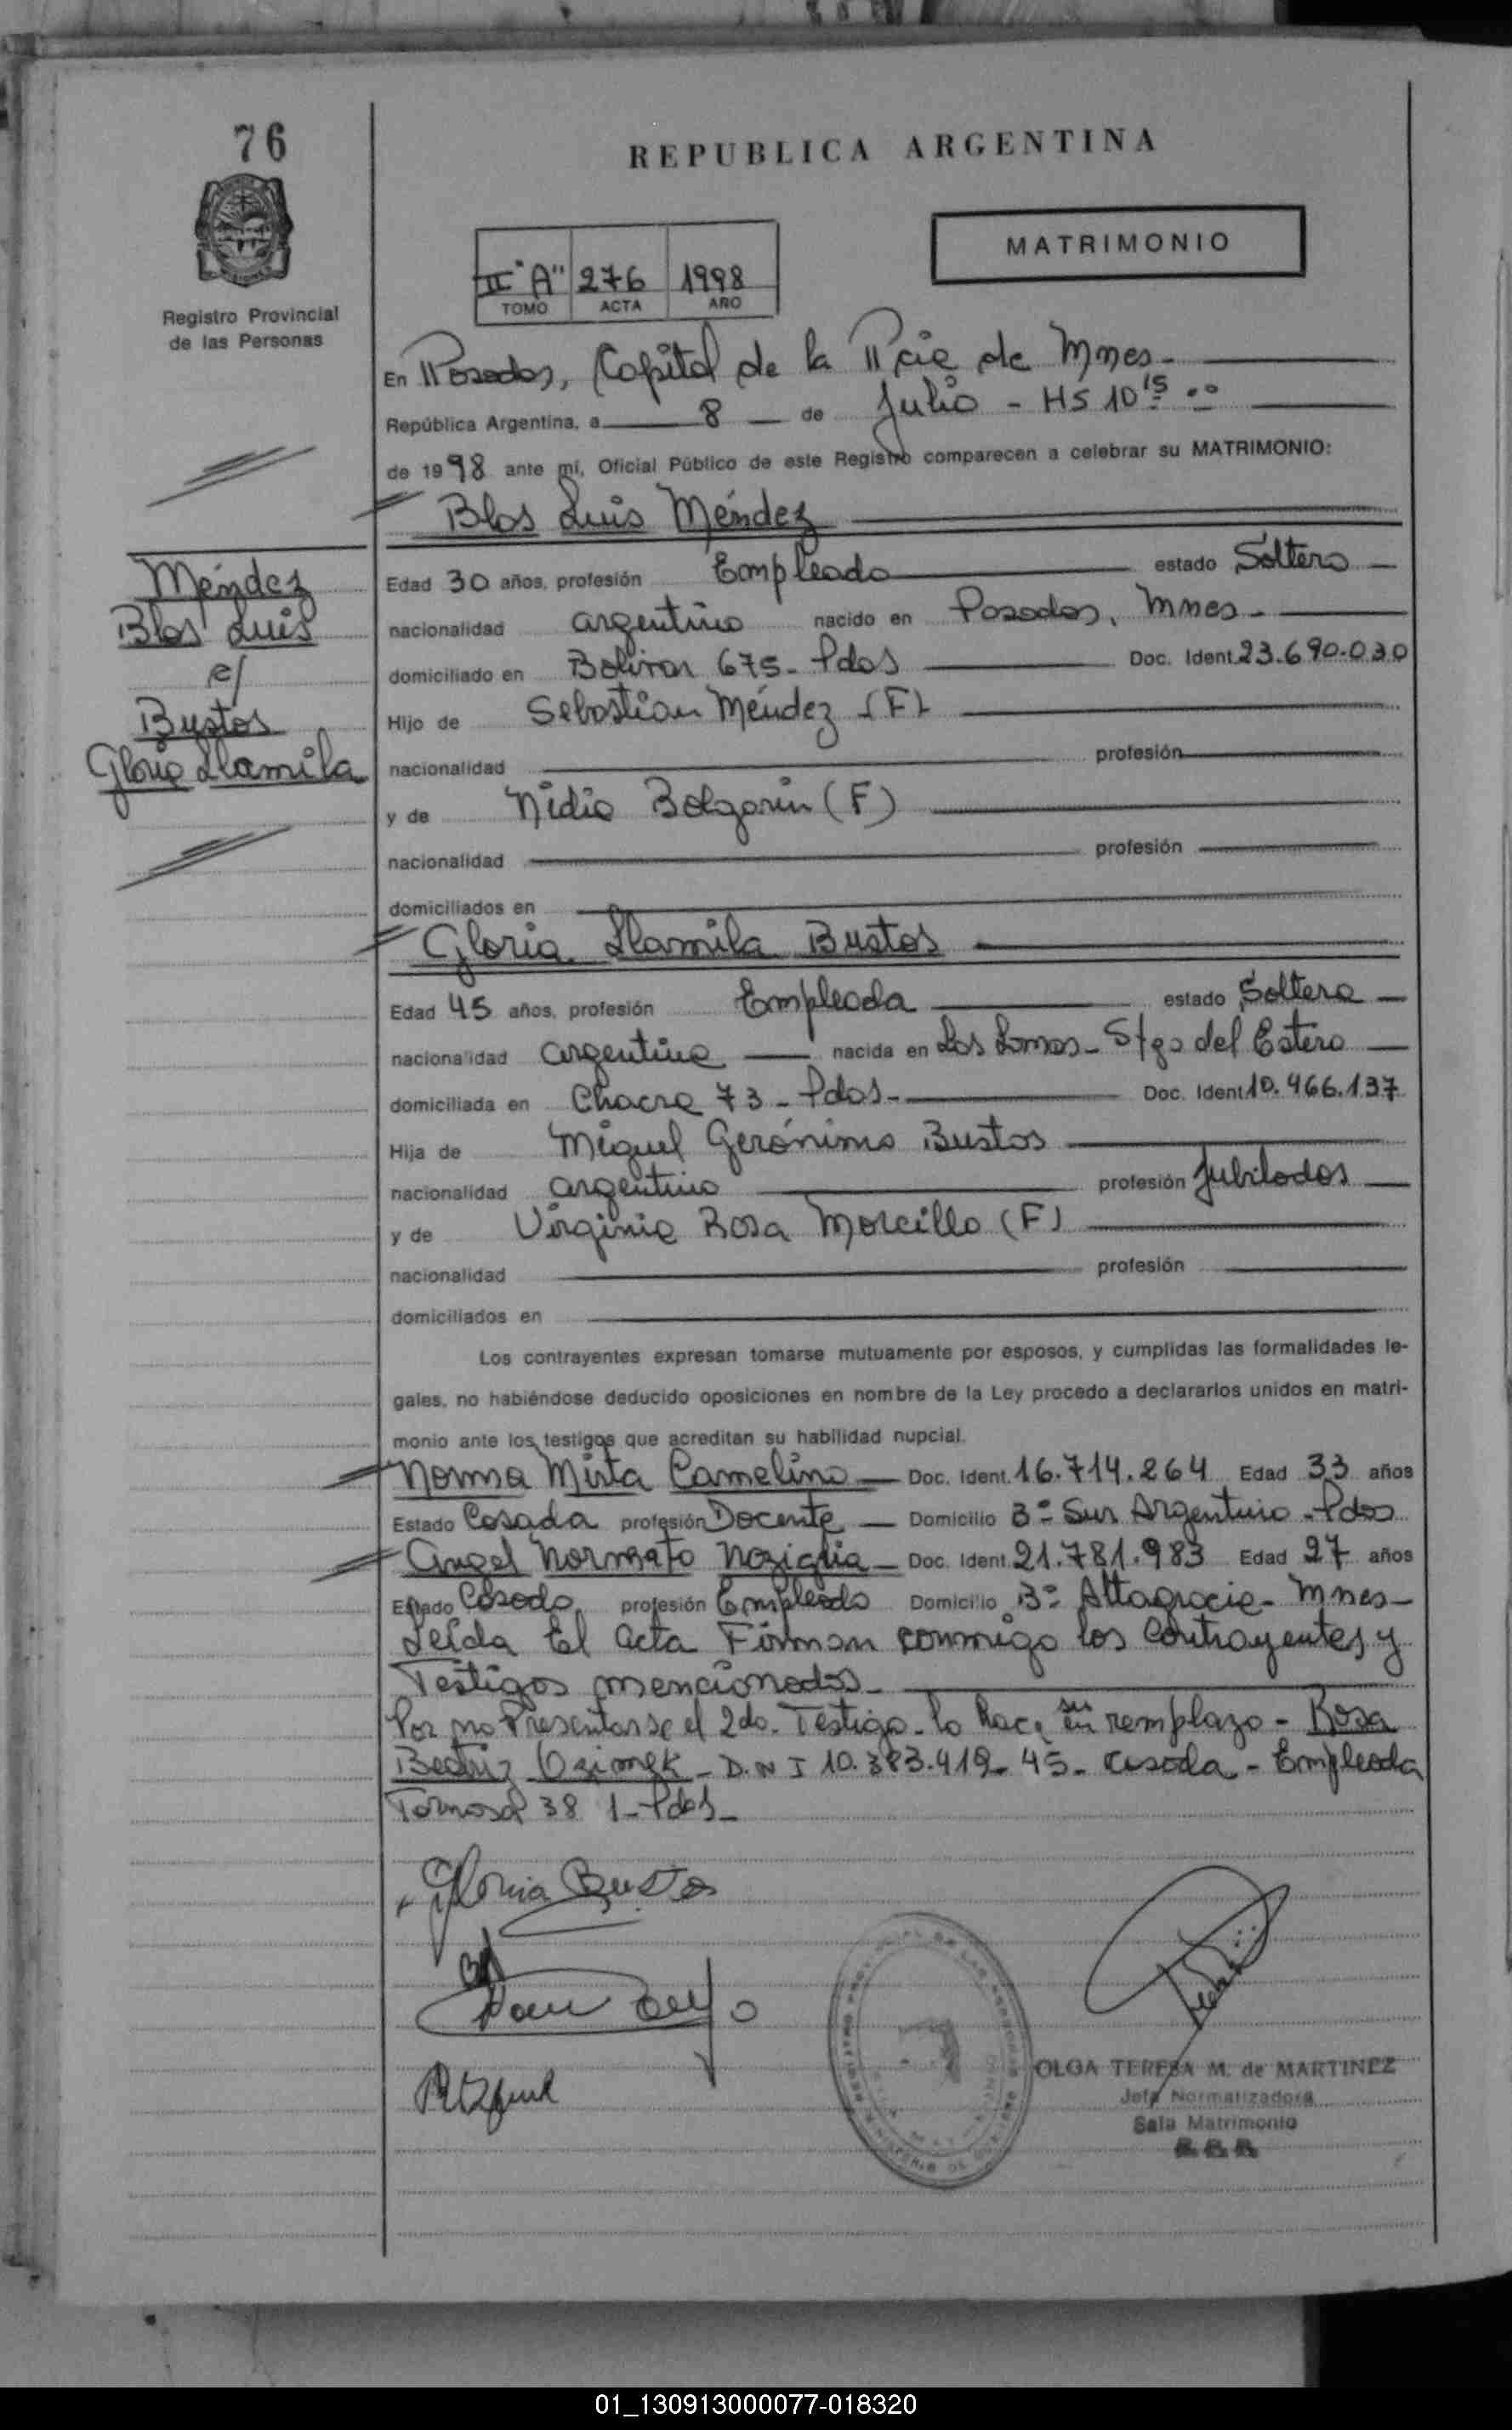 76
REPUBLICA ARGENTINA
MATRIMONIO
II "A" 276 1998
TOMO ACTA AÑO
Registro Provincial
de las Personas
En Posadas, Capital de la Pcia de Mnes-
República Argentina, a 8 de Julio - HS 10 15
de 1998 ante mí, Oficial Público de este Registro comparecen a celebrar su MATRIMONIO:
Blas Luis Méndez
Méndez
Blas Luis
c/
Bustos
Gloria Llamila
Edad 30 años, profesión Empleado estado Soltero
nacionalidad argentino nacido en Posadas, Mnes-
domiciliado en Bolivar 675- Pdas Doc. Ident. 23.690.030
Hijo de Sebastian Méndez (F)
nacionalidad profesión
y de Nidia Balgarin (F)
nacionalidad profesión
domiciliados en
Gloria Llamila Bustos
Edad 45 años, profesión Empleada estado Soltera
nacionalidad argentina nacida en Los Lomas- Stgo del Estero
domiciliada en Chacra 73 - Pdas- Doc. Ident. 10.466.137
Hija de Miguel Gerónimo Bustos
nacionalidad argentino profesión Jubilados
y de Virginia Rosa Morcillo (F)
nacionalidad profesión
domiciliados en
Los contrayentes expresan tomarse mutuamente por esposos, y cumplidas las formalidades le-
gales, no habiéndose deducido oposiciones en nombre de la Ley procedo a declararlos unidos en matri-
monio ante los testigos que acreditan su habilidad nupcial.
Norma Mirta Camelino Doc. Ident. 16.714.264 Edad 33 años
Estado Casada profesión Docente Domicilio B° Sur Argentino - Pdas
Angel Normato Noziglia Doc. Ident. 21.781.983 Edad 27 años
Estado Casado profesión Empleado Domicilio B° Altagracia- Mnes-
Leída El acta Firman conmigo los Contrayentes y
Testigos mencionados-
Por no Presentarse el 2do. Testigo- lo hace en su remplazo - Rosa
Beatriz Ozimek - D.N I 10.383.419- 45- casada - Empleada
Formosa 38 1- Pdas-
Gloria Bustos
OLGA TERESA M. de MARTINEZ
Jefa Normatizadora
Sala Matrimonio
01_130913000077-018320